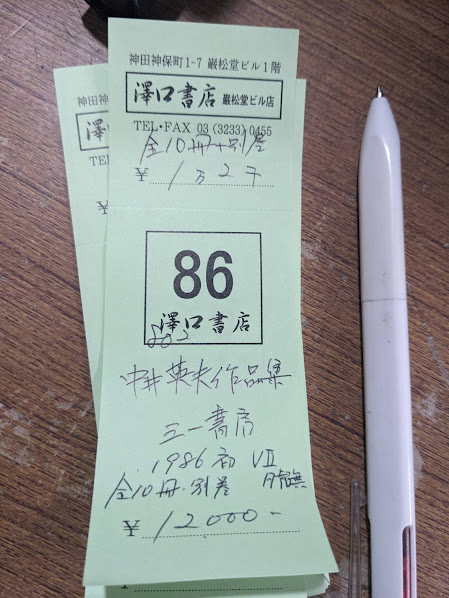 神田神保町1-7 巖松堂ビル1階
澤口書店 巖松堂ビル店
TEL・FAX 03 (3233) 0455
全10冊+別巻
¥ 1万2千
86
澤口書店
802
中井英夫作品集
三一書房
1986 初 VII
全10冊・別巻 月報無
¥ 12000-
神田神
澤
TE
¥